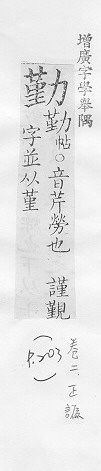 增廣字學舉隅
勤 勤帖○音芹勞也 謹覲
字並从堇
卷二 正譌
(P.203)